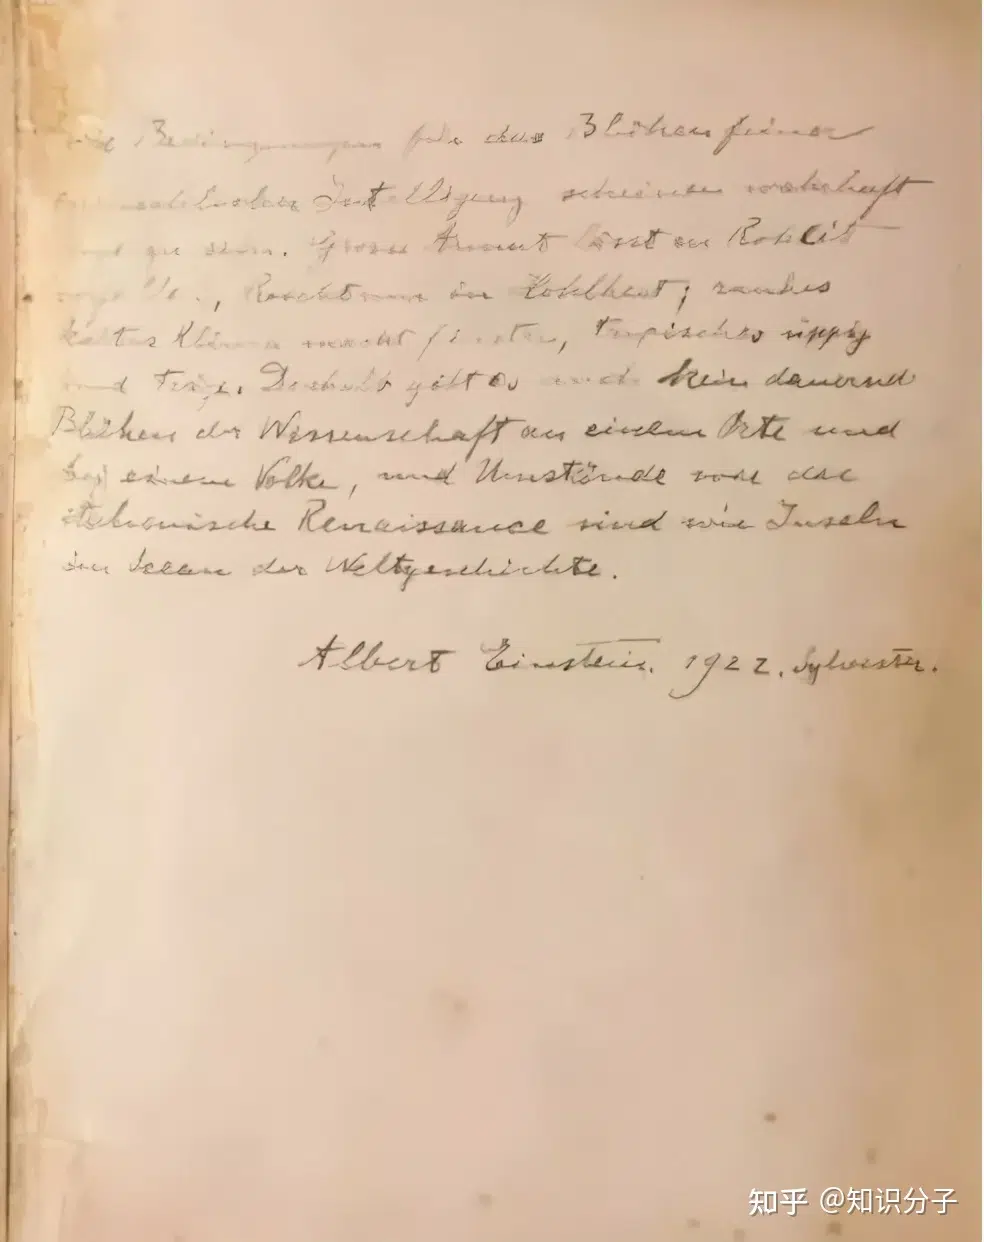 Bedingungen für das Blühen feiner
Intelligenz scheinen wahrhaft
zu sein. Armut lässt in Rohheit
, Reichtum in Hohlheit; rauhes
kaltes Klima macht finster, tropisches üppig
und träge. Deshalb gibt es auch kein dauernd
Blühen der Wissenschaft an einem Orte und
bei einem Volke, und Umstände wie die
italienische Renaissance sind wie Inseln
im Ocean der Weltgeschichte.
Albert Einstein. 1922. Sylvester.
知乎 @知识分子